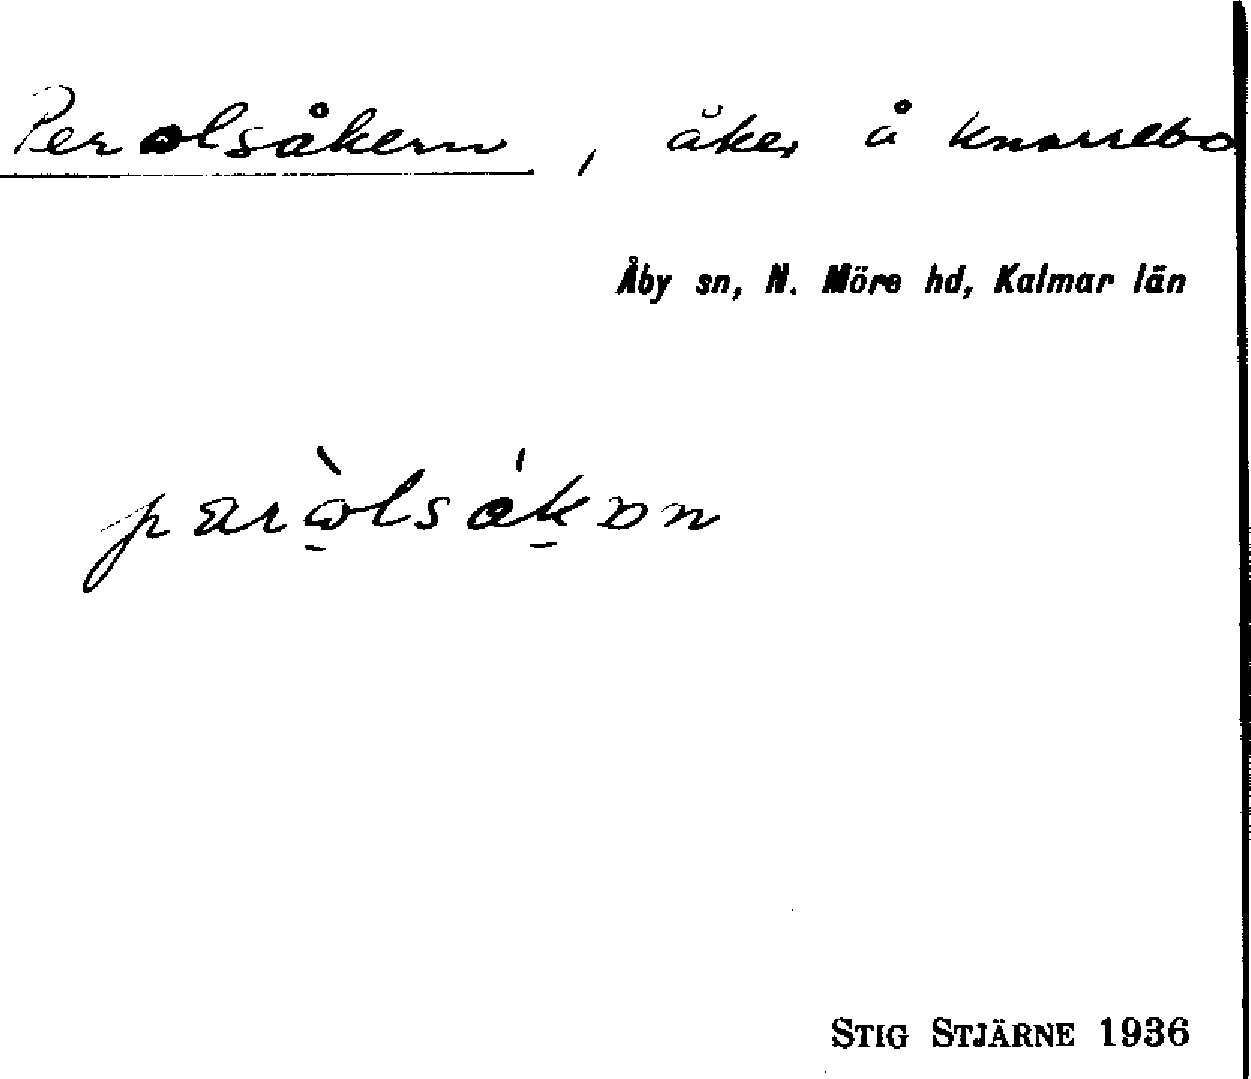 Perolsåkern, åker å Knarrebo
Åby sn, N. Möre hd, Kalmar län
STIG STJÄRNE 1936